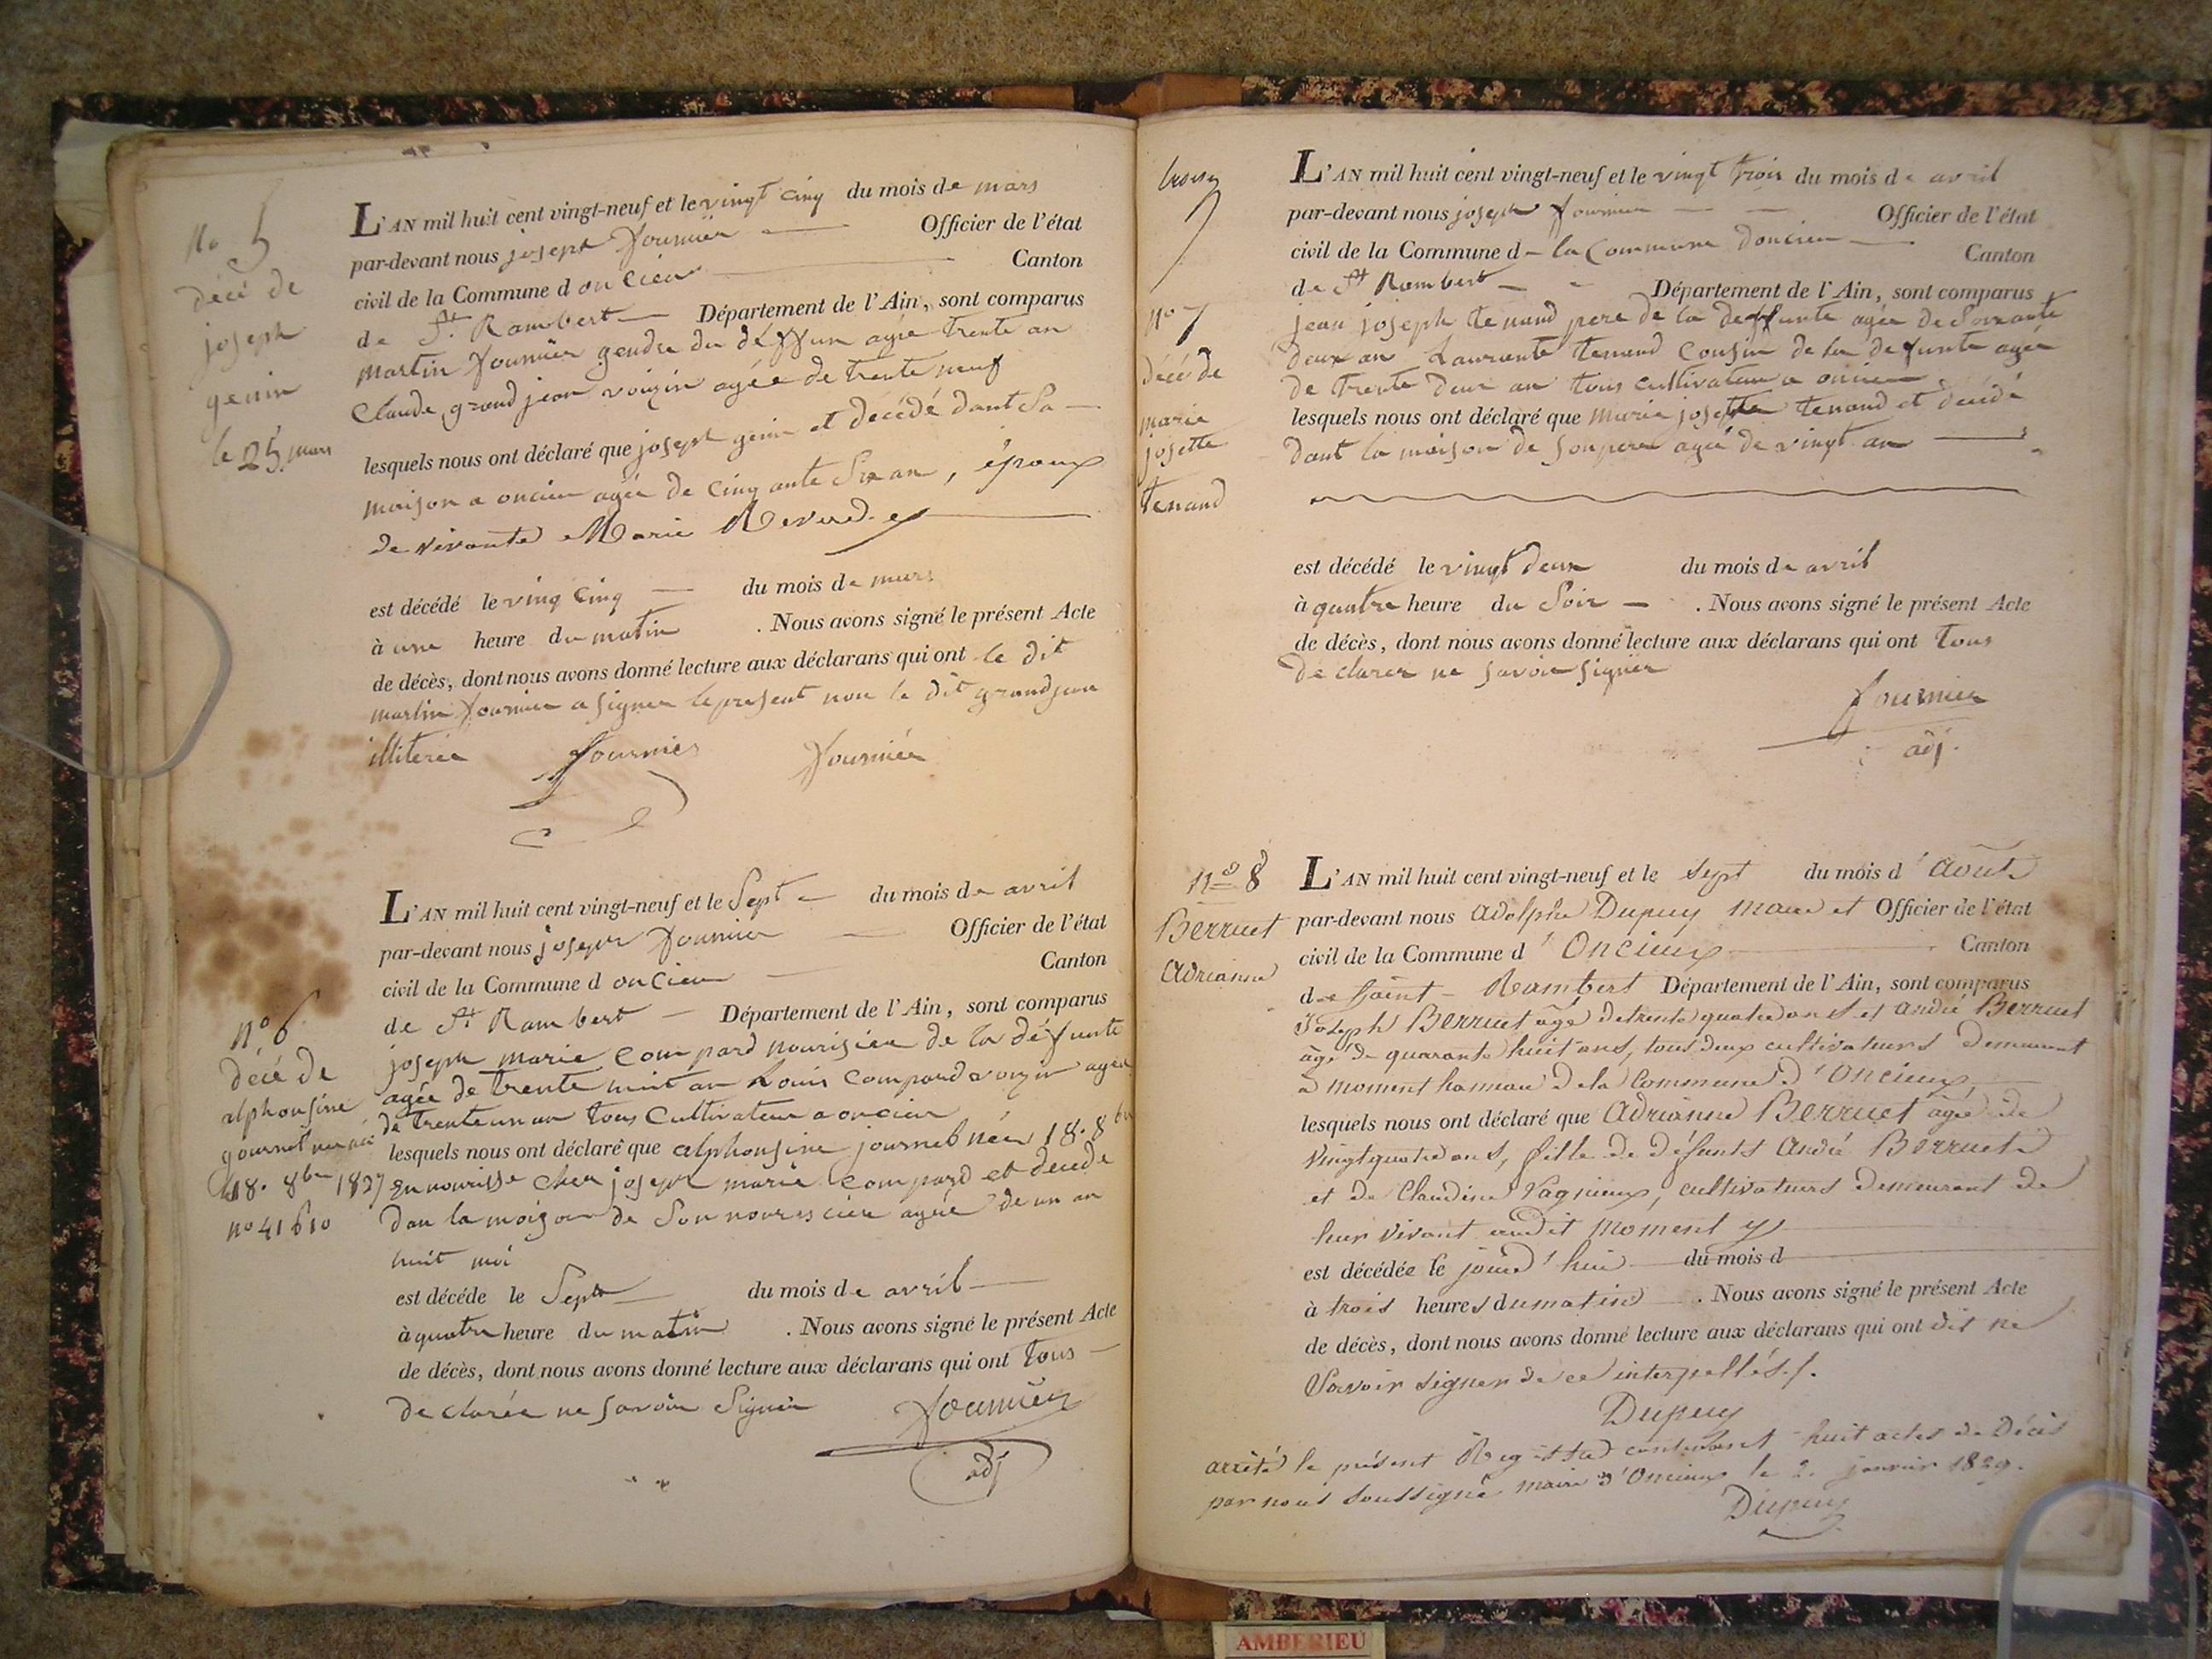 No 5
décé de
joseph
genin
le 25 mars
L'AN mil huit cent vingt-neuf et le vingt cinq du mois de mars
par-devant nous joseph fournier Officier de l'état
civil de la Commune d oncieu Canton
de St. Rambert Département de l'Ain, sont comparus
martin fournier gendre du déffun agée trente an
Claude grand jean voizin agée de trente neuf
lesquels nous ont déclaré que joseph genin et décédé dant Sa
maison a oncieu agée de cinqante Six an, époux
de vivante Marie Reverdy
est décédé le vinq cinq du mois de mars
à une heure du matin . Nous avons signé le présent Acte
de décès, dont nous avons donné lecture aux déclarans qui ont le dit
martin fournier a signer le present non le dit grandjean
illiterée fournier fournier
No 6
décé de
alphonsine
journet née
18. 8bre 1827
no 41610
L'AN mil huit cent vingt-neuf et le Sept du mois de avril
par-devant nous joseph fournier Officier de l'état
civil de la Commune d oncieu Canton
de St Rambert Département de l'Ain, sont comparus
joseph marie compard nourisier de la défunte
agée de trente huit an Louis compard voizin agée
de trente un an tous Cultivateur a oncieu
lesquels nous ont déclaré que alphonsine journet née 18. 8bre
en nourisse cher joseph marie compard et décédé
dan la maizon de Son nourescier agée de un an
huit moi
est décédé le Sept du mois de avril
à quatre heure du matin . Nous avons signé le présent Acte
de décès, dont nous avons donné lecture aux déclarans qui ont tous
declarée ne savoir Signer fournier
adj
No 7
décé de
marie
josette
tenand
L'AN mil huit cent vingt-neuf et le vingt trois du mois de avril
par-devant nous joseph fournier Officier de l'état
civil de la Commune d la Commune doncieu Canton
de St Rambert Département de l'Ain, sont comparus
jean joseph tenand pere de la deffunte agée de Soixante
deux an Laurente tenand cousin de la defunte agée
de trente deux an tous cultivateur a oncieu
lesquels nous ont déclaré que marie josette tenand et décédé
dant la maison de Son pere agée de vingt an
est décédé le vingt deux du mois de avril
à quatre heure du Soir . Nous avons signé le présent Acte
de décès, dont nous avons donné lecture aux déclarans qui ont tous
declarer ne savoir signer
fournier
adj.
No 8
Berruet
Adrianne
L'AN mil huit cent vingt-neuf et le sept du mois d'Août
par-devant nous Adolphe Dupuy Maire et Officier de l'état
civil de la Commune d'Oncieux Canton
de Saint-Rambert Département de l'Ain, sont comparus
Joseph Berruet âgé de trente quatre ans et André Berruet
âgé de quarante huit ans, tous deux cultivateurs demeurant
à moment hameau de la Commune d'Oncieux,
lesquels nous ont déclaré que Adrianne Berruet âgée de
vingt quatre ans, fille de défunts André Berruet
et de Claudine Vagnieux, cultivateurs demeurant de
leur vivant audit Moment
est décédée le jourd'hui du mois d
à trois heures du matin . Nous avons signé le présent Acte
de décès, dont nous avons donné lecture aux déclarans qui ont dit ne
Savoir signer de ce interpellés./.
Dupuy
arrêté le présent Registre contenant huit actes de Décès
par nous soussigné maire d'Oncieux le 2. janvier 1829.
Dupuy
AMBERIEU